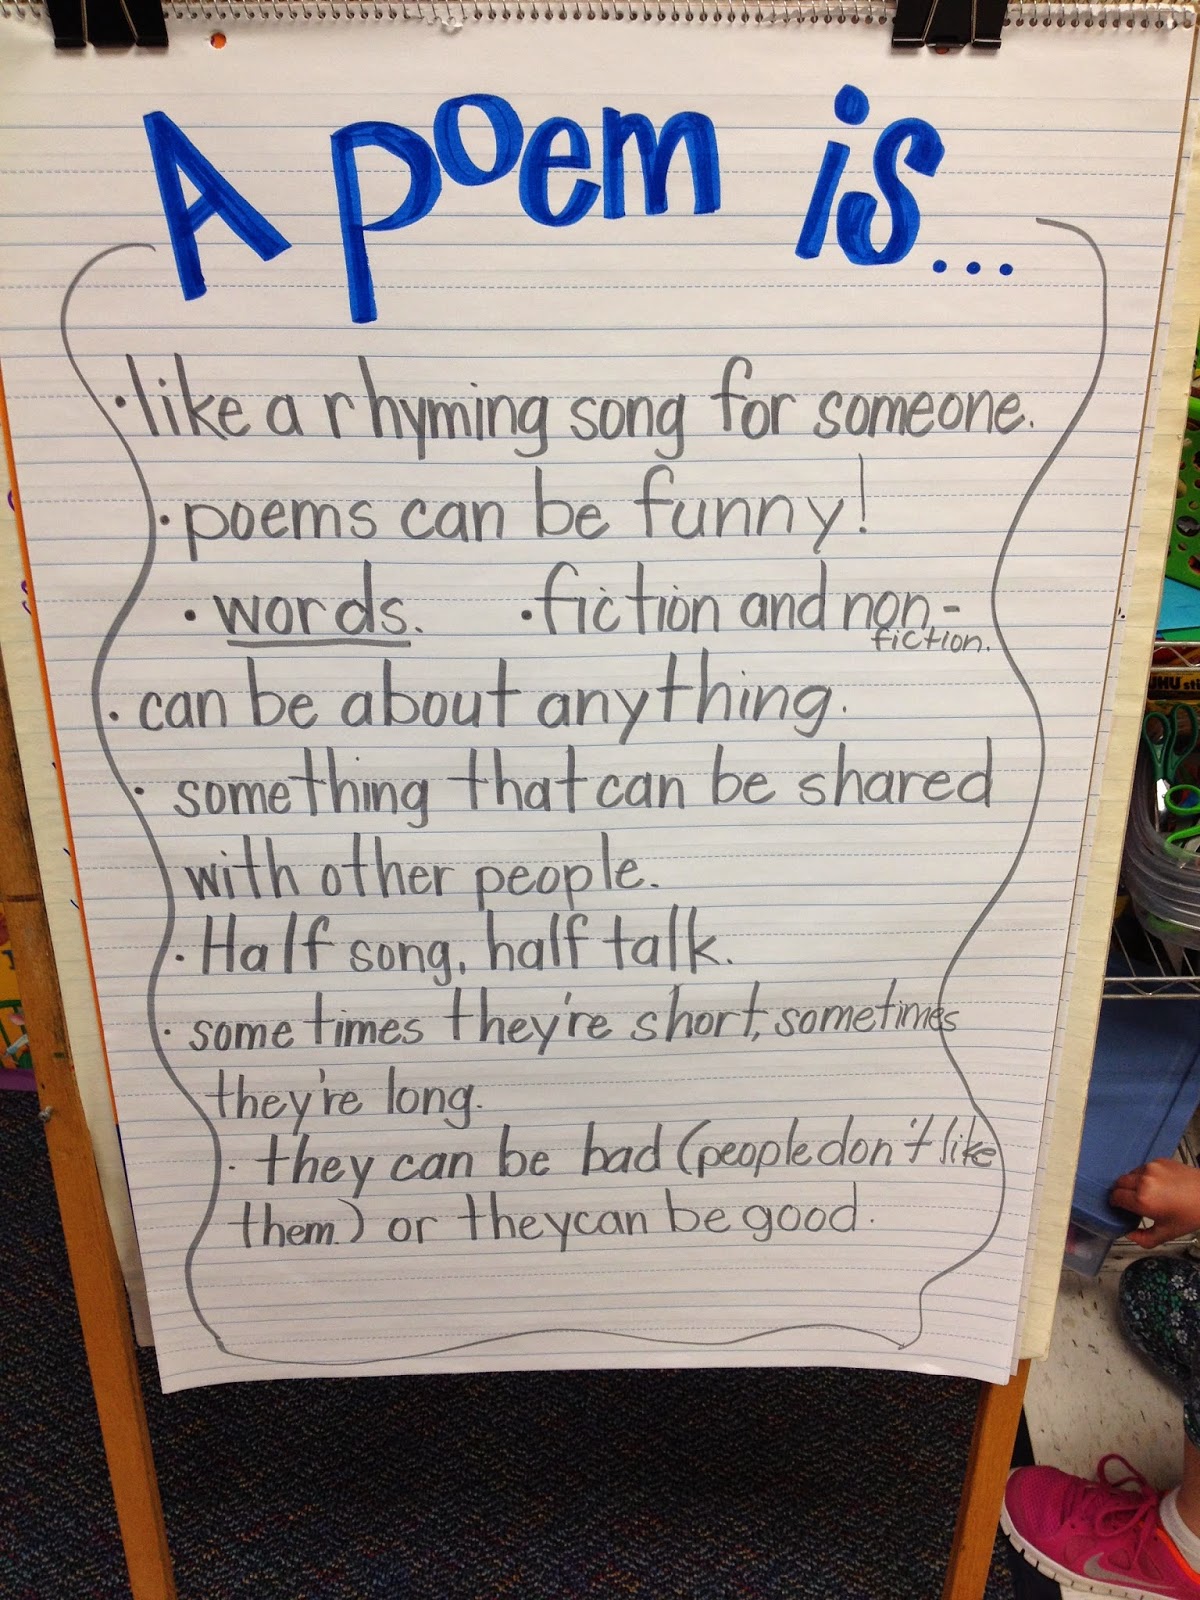 A poem is...
•like a rhyming song for someone.
•poems can be funny!
•words. •fiction and non-
fiction.
•can be about anything.
•something that can be shared
with other people.
•Half song, half talk.
•sometimes they're short, sometimes
they're long.
•they can be bad (people don't like
them.) or they can be good.
UHU sti